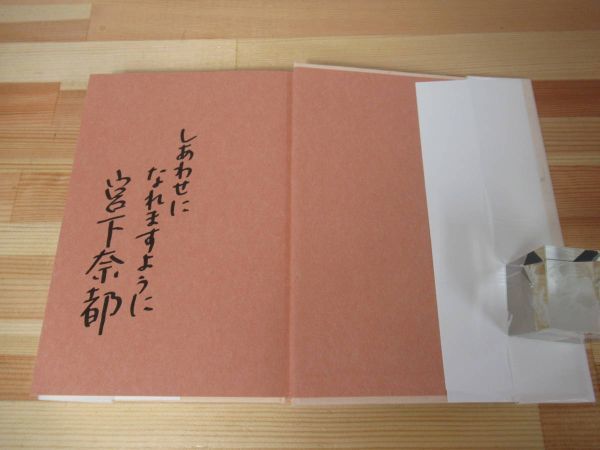 しあわせに
なれますように
宮下奈都